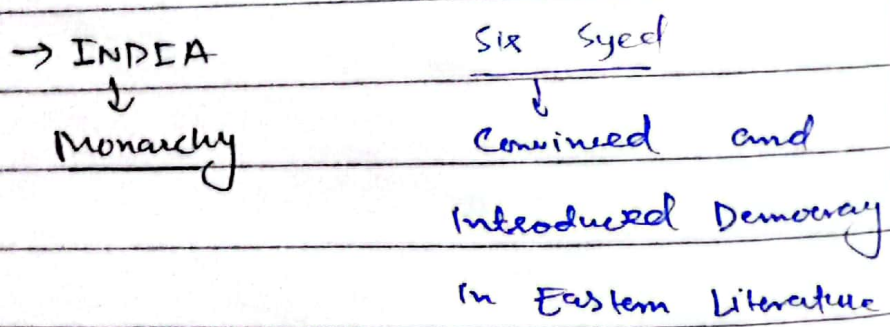 → INDIA
↓
Monarchy
Sir Syed
↓
Convinced and
Introduced Democracy
in Eastern Literature